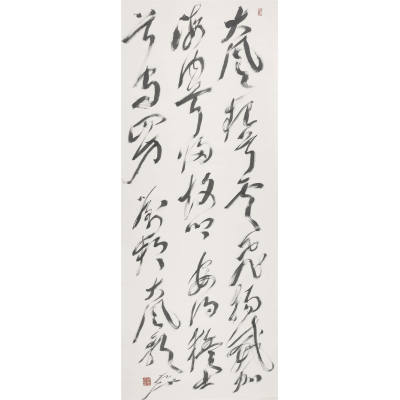 大風起兮雲飛揚威加
海内兮歸故鄉安得猛士
兮守四方 劉邦大風歌